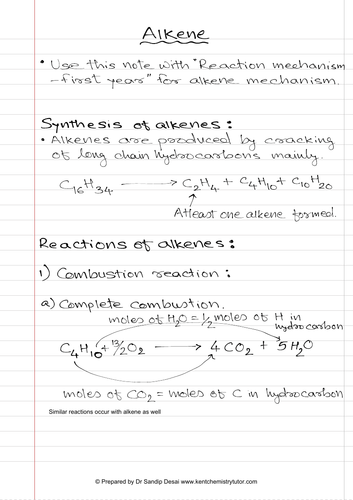 Alkene
• Use this note with "Reaction mechanism
- first year" for alkene mechanism.
Synthesis of alkenes :
• Alkenes are produced by cracking
of long chain hydrocarbons mainly.
C₁₆H₃₄ ⟶ C₂H₄ + C₄H₁₀ + C₁₀H₂₀
Atleast one alkene formed.
Reactions of alkenes :
1) Combustion reaction :
a) Complete combustion.
moles of H₂O = 1/2 moles of H in
hydrocarbon
C₄H₁₀ + 13/2 O₂ ⟶ 4 CO₂ + 5H₂O
moles of CO₂ = moles of C in hydrocarbon
Similar reactions occur with alkene as well
© Prepared by Dr Sandip Desai www.kentchemistrytutor.com